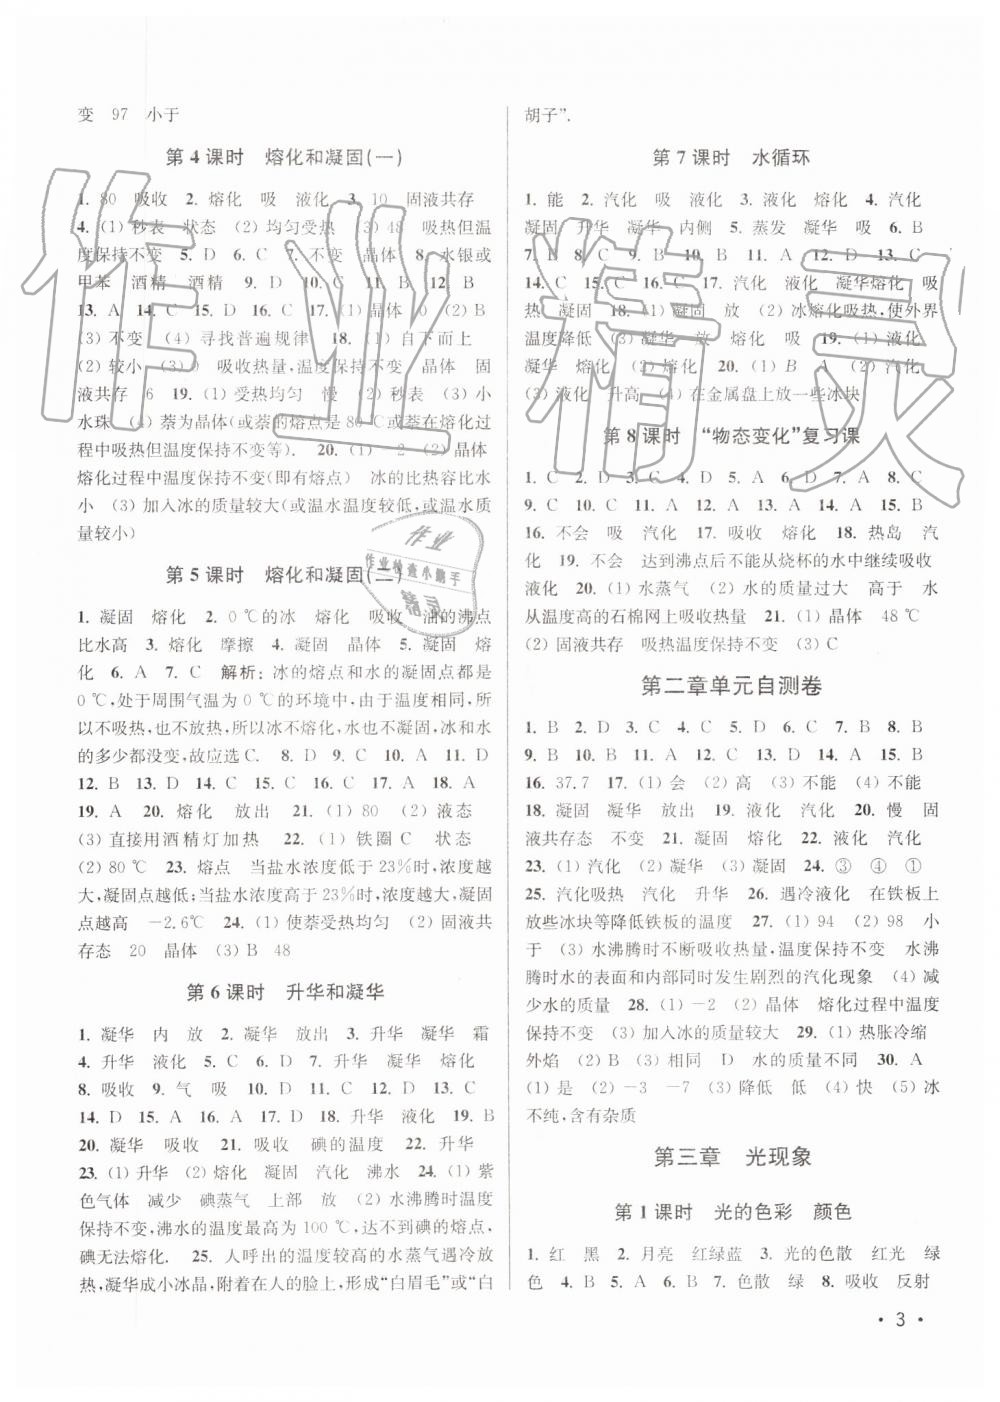 变 97 小于
第4课时 熔化和凝固(一)
1. 80 吸收 2. 熔化 吸 液化 3. 10 固液共存
4. (1) 秒表 状态 (2) 均匀受热 (3) 48 吸热但温
度保持不变 5. D 6. C 7. 不变 晶体 8. 水银或
甲苯 酒精 酒精 9. D 10. C 11. B 12. B
13. A 14. C 15. D 16. C 17. (1) 晶体 (2) B
(3) 不变 (4) 寻找普遍规律 18. (1) 自下而上
(2) 较小 (3) 0 吸收热量,温度保持不变 晶体 固
液共存 6 19. (1) 受热均匀 慢 (2) 秒表 (3) 小
水珠 (4) 萘为晶体(或萘的熔点是80 ℃或萘在熔化过
程中吸热但温度保持不变等). 20. (1) -2 (2) 晶体
熔化过程中温度保持不变(即有熔点) 冰的比热容比水
小 (3) 加入冰的质量较大(或温水温度较低,或温水质
量较小)
第5课时 熔化和凝固(二)
1. 凝固 熔化 2. 0 ℃的冰 熔化 吸收 油的沸点
比水高 3. 熔化 摩擦 4. 凝固 晶体 5. 凝固 熔
化 6. A 7. C 解析:冰的熔点和水的凝固点都是
0 ℃,处于周围气温为0 ℃的环境中,由于温度相同,所
以不吸热,也不放热,所以冰不熔化,水也不凝固,水和冰
的多少都没变,故应选C. 8. D 9. C 10. A 11. D
12. B 13. D 14. C 15. C 16. D 17. A 18. A
19. A 20. 熔化 放出 21. (1) 80 (2) 液态
(3) 直接用酒精灯加热 22. (1) 铁圈C 状态
(2) 80 ℃ 23. 熔点 当盐水浓度低于23%时,浓度越
大,凝固点越低;当盐水浓度高于23%时,浓度越大,凝固
点越高 -2.6℃ 24. (1) 使萘受热均匀 (2) 固液共
存态 20 晶体 (3) B 48
第6课时 升华和凝华
1. 凝华 内 放 2. 凝华 放出 3. 升华 凝华 霜
4. 升华 液化 5. C 6. D 7. 升华 凝华 熔化
8. 吸收 9. 气 吸 10. D 11. D 12. B 13. C
14. D 15. A 16. C 17. D 18. 升华 液化 19. B
20. 凝华 吸收 21. 吸收 碘的温度 22. 升华
23. (1) 升华 (2) 熔化 凝固 汽化 沸水 24. (1) 紫
色气体 减少 碘蒸气 上部 放 (2) 水沸腾时温度
保持不变,沸水的温度最高为100 ℃,达不到碘的熔点,
碘无法熔化. 25. 人呼出的温度较高的水蒸气遇冷放
热,凝华成小冰晶,附着在人的脸上,形成“白眉毛”或“白
胡子”.
第7课时 水循环
1. 能 2. 汽化 吸 液化 3. 液化 熔化 4. 汽化
凝固 升华 凝华 内侧 5. 蒸发 凝华 吸 6. B
7. D 8. B 9. B 10. D 11. A 12. D 13. C
14. B 15. C 16. C 17. 汽化 液化 凝华熔化 吸
热 凝固 18. (1) 凝固 放 (2) 冰熔化吸热,使外界
温度降低 (3) 凝华 放 熔化 吸 19. (1) 液化
凝华 熔化 (2) 熔化 20. (1) B (2) 汽化
(3) 液化 升高 (4) 在金属盘上放一些冰块
第8课时 “物态变化”复习课
1. C 2. D 3. C 4. D 5. A 6. D 7. A 8. D
9. C 10. C 11. B 12. C 13. A 14. A 15. B
16. 不会 吸 汽化 17. 吸收 熔化 18. 热岛 汽
化 19. 不会 达到沸点后不能从烧杯的水中继续吸收
液化 20. (1) 水蒸气 (2) 水的质量过大 高于 水
从温度高的石棉网上吸收热量 21. (1) 晶体 48 ℃
(2) 固液共存 吸热温度保持不变 (3) C
第二章单元自测卷
1. B 2. D 3. C 4. C 5. D 6. C 7. B 8. B
9. B 10. B 11. A 12. C 13. D 14. A 15. B
16. 37.7 17. (1) 会 (2) 高 (3) 不能 (4) 不能
18. 凝固 凝华 放出 19. 液化 汽化 20. 慢 固
液共存态 不变 21. 凝固 熔化 22. 液化 汽化
23. (1) 汽化 (2) 凝华 (3) 凝固 24. ③ ④ ①
25. 汽化吸热 汽化 升华 26. 遇冷液化 在铁板上
放些冰块等降低铁板的温度 27. (1) 94 (2) 98 小
于 (3) 水沸腾时不断吸收热量,温度保持不变 水沸
腾时水的表面和内部同时发生剧烈的汽化现象 (4) 减
少水的质量 28. (1) -2 (2) 晶体 熔化过程中温度
保持不变 (3) 加入冰的质量较大 29. (1) 热胀冷缩
外焰 (2) B (3) 相同 D 水的质量不同 30. A
(1) 是 (2) -3 -7 (3) 降低 低 (4) 快 (5) 冰
不纯,含有杂质
第三章 光现象
第1课时 光的色彩 颜色
1. 红 黑 2. 月亮 红绿蓝 3. 光的色散 红光 绿
色 4. B 5. A 6. B 7. 色散 绿 8. 吸收 反射
· 3 ·
作业精灵
作业
作业检查小助手
精灵